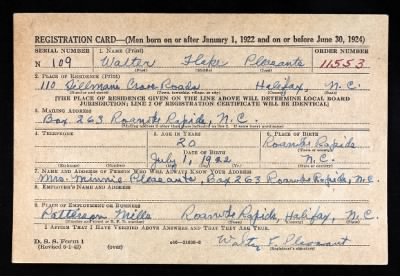 REGISTRATION CARD—(Men born on or after January 1, 1922 and on or before June 30, 1924)
SERIAL NUMBER 1. NAME (Print) ORDER NUMBER
N 109 Walter Flake Pleasants 11553
(First) (Middle) (Last)
2. PLACE OF RESIDENCE (Print)
110 Cross Roads Halifax, N.C.
[THE PLACE OF RESIDENCE GIVEN ON THE LINE ABOVE WILL DETERMINE LOCAL BOARD JURISDICTION; LINE 2 OF REGISTRATION CERTIFICATE WILL BE IDENTICAL]
3. MAILING ADDRESS
Box 263 Roanoke Rapids, N.C.
[Mailing address if other than place indicated on line 2. If same insert word same]
4. TELEPHONE 5. AGE IN YEARS 6. PLACE OF BIRTH
20 Roanoke Rapids
DATE OF BIRTH
July 1, 1922 N.C.
(Exchange) (Number) (Mo.) (Day) (Yr.) (State or country)
7. NAME AND ADDRESS OF PERSON WHO WILL ALWAYS KNOW YOUR ADDRESS
Mrs. Minnie Pleasants, Box 263 Roanoke Rapids, N.C.
8. EMPLOYER'S NAME AND ADDRESS
9. PLACE OF EMPLOYMENT OR BUSINESS
Patterson Mills Roanoke Rapids, Halifax, N.C.
I AFFIRM THAT I HAVE VERIFIED ABOVE ANSWERS AND THAT THEY ARE TRUE.
D. S. S. Form 1
(Revised 6-9-42) (over)
Walter F. Pleasant
(Registrant's signature)